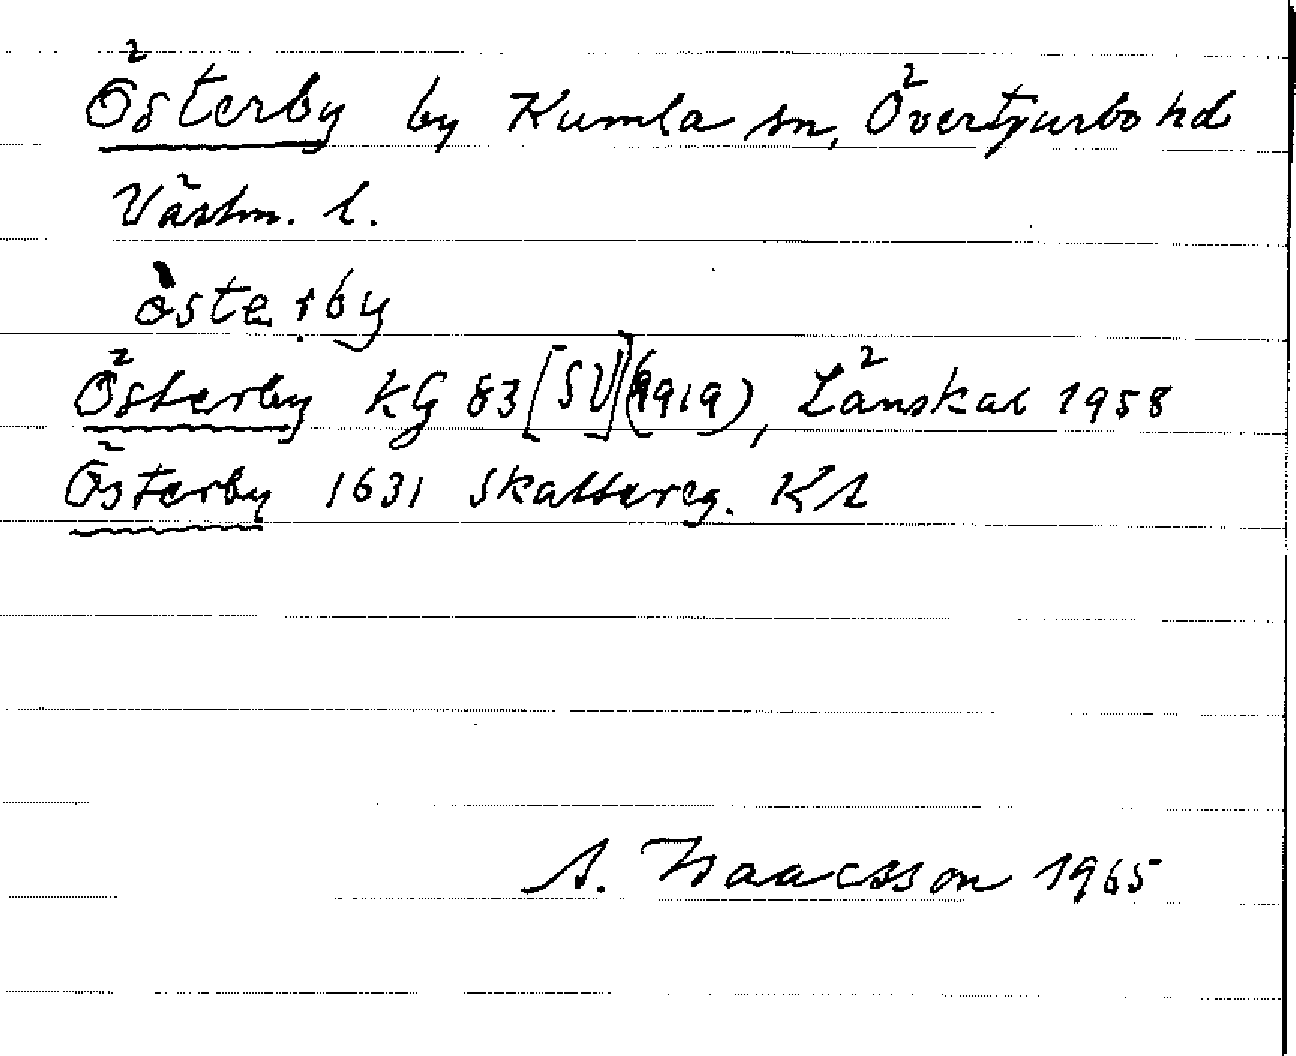 Österby by Kumla sn, Övertjurbo hd
Västm. l.
òsterby
Österby KG 83 [SV] (1919), Länskal 1958
Österby 1631 Skattereg. KA
A. Isaacsson 1965